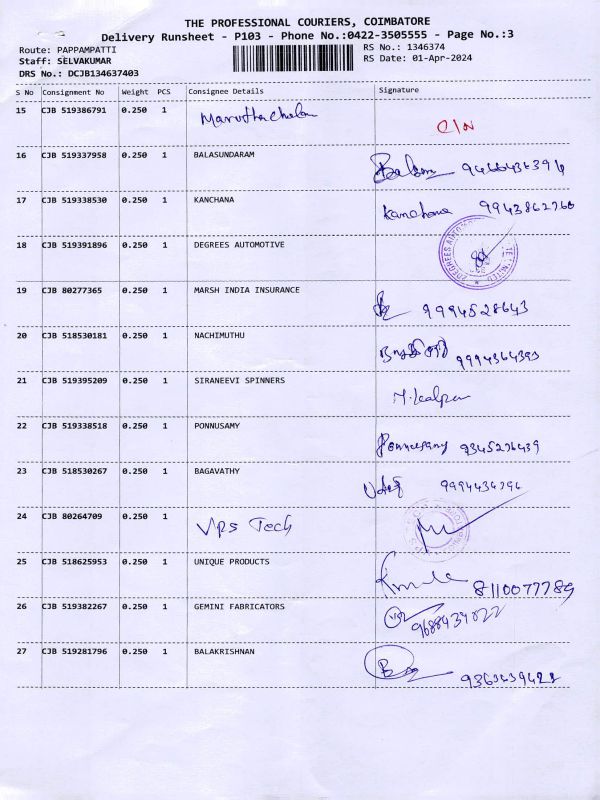 THE PROFESSIONAL COURIERS, COIMBATORE
Delivery Runsheet - P103 - Phone No.:0422-3505555 - Page No.:3
Route: PAPPAMPATTI
Staff: SELVAKUMAR
DRS No.: DCJB134637403
RS No.: 1346374
RS Date: 01-Apr-2024
S No Consignment No Weight PCS Consignee Details Signature
15 CJB 519386791 0.250 1 Maruthachalam
16 CJB 519337958 0.250 1 BALASUNDARAM
17 CJB 519338530 0.250 1 KANCHANA Kanchana 9943862760
18 CJB 519391896 0.250 1 DEGREES AUTOMOTIVE
19 CJB 80277365 0.250 1 MARSH INDIA INSURANCE 9994528643
20 CJB 518530181 0.250 1 NACHIMUTHU 9994364393
21 CJB 519395209 0.250 1 SIRANEEVI SPINNERS
22 CJB 519338518 0.250 1 PONNUSAMY Ponnusamy 9345276439
23 CJB 518530267 0.250 1 BAGAVATHY 9994434396
24 CJB 80264709 0.250 1 Vps Tech
25 CJB 518625953 0.250 1 UNIQUE PRODUCTS 8110077789
26 CJB 519382267 0.250 1 GEMINI FABRICATORS 9688434822
27 CJB 519281796 0.250 1 BALAKRISHNAN